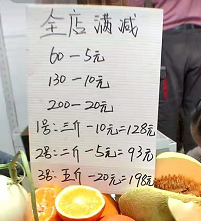 全店满减
60-5元
130-10元
200-20元
1号:三斤-10元=128元
2号:二斤-5元=93元
3号:五斤-20元=198元